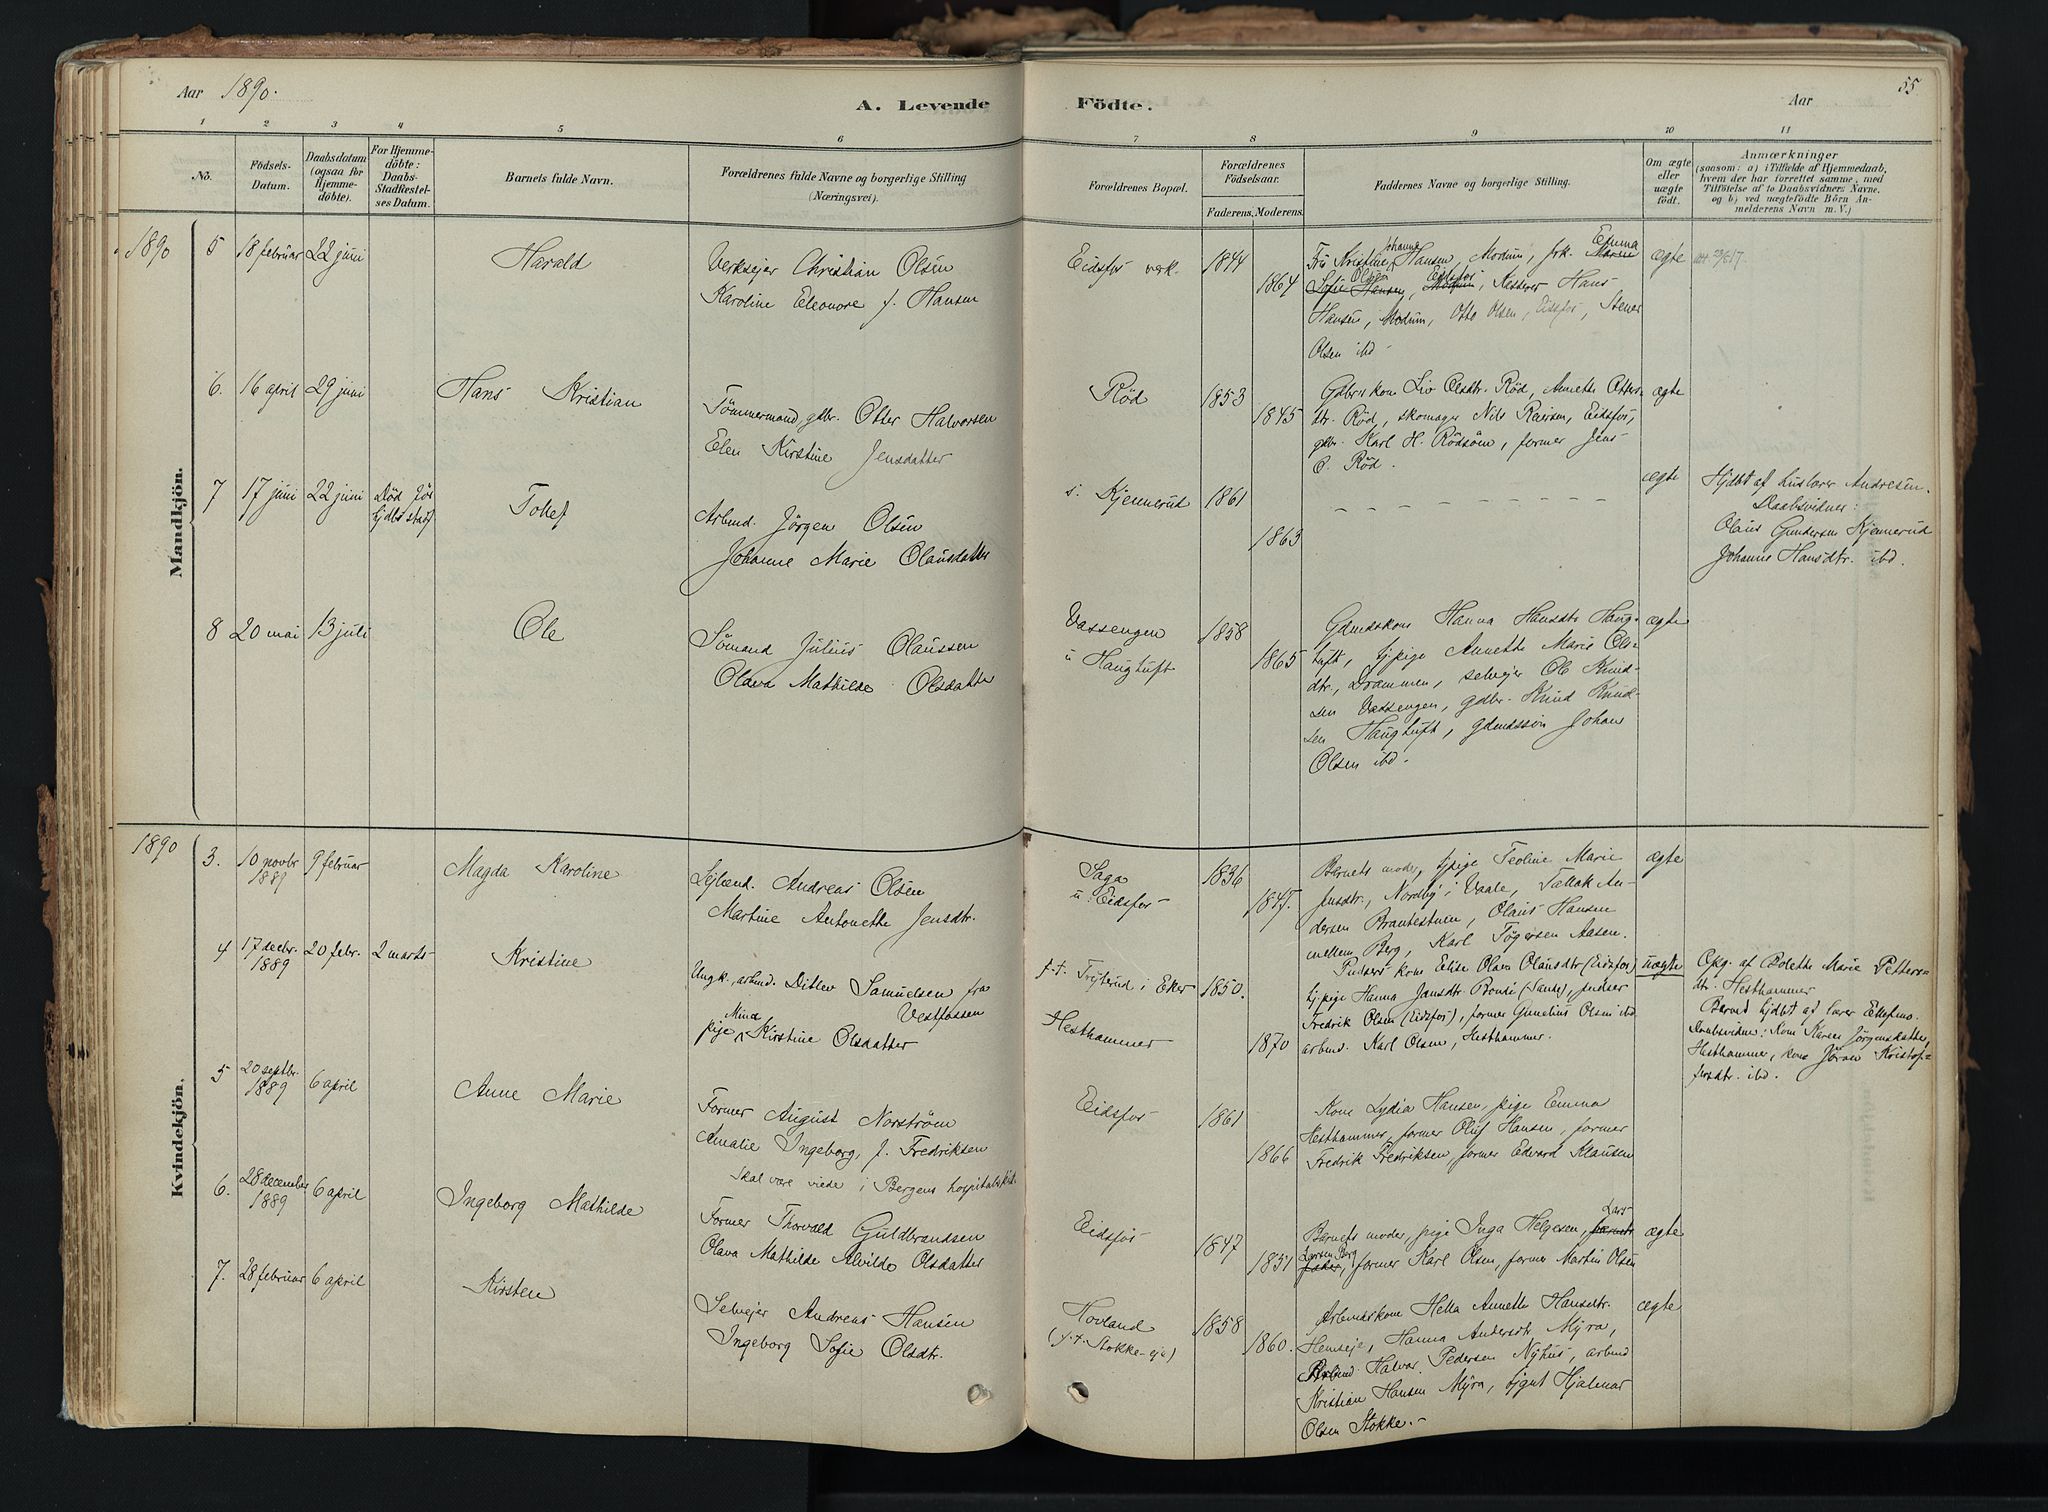 Aar 1890.
A. Levende
Födte.
Aar
55
1
2
3
4
5
6
7
8
9
10
11
No.
Födsels-
Datum.
Daabsdatum
(ogsaa for
Hjemme-
døbte).
For Hjemme-
døbte:
Daabs-
Stadfæstel-
ses Datum.
Barnets fulde Navn.
Forældrenes fulde Navne og borgerlige Stilling
(Næringsvei).
Forældrenes Bopæl.
Forældrenes
Födselsaar.
Faderens.
Moderens.
Faddernes Navne og borgerlige Stilling.
Om ægte
eller
uægte
født.
Anmærkninger
(saasom: a) i Tilfælde af Hjemmedaab,
hvem der har forrettet samme, med
Tilföielse af to Daabsvidners Navne,
og b) ved uægtefödte Börn An-
melderens Navn m. V.)
Mandkjön.
1890
5
18 februar
22 juni
Harald
Verksejer Christian Olsen
Karoline Eleonore f. Hansen
Eidsfos verk.
1844
1864
Johanna
Emma
Fru Kristine Hansen, Modum, frk.
Olsen
Eidsfos
Sofie Hansen, Modum, Kasserer Hans
Hansen, Modum, Otto Olsen, Eidsfos, Stener
Olsen ibd.
ægte
6.
16 april
29 juni
Hans Kristian
Tömmermand, gdbr. Otter Halvorsen
Elen Kirstine Jensdatter
Röd
1853
1845
Gdbrskone Liv Olsdtr. Röd, Annette Otters-
dtr. Röd, skomager Nils Reiersen, Eidsfos,
gdbr. Karl H. Rödsön, former Jens
O. Röd.
ægte
7
17 juni
22 juni
Död för
hjdbs stadf
Tollef
Arbmd. Jörgen Olsen
Johanne Marie Olausdatter
s. Kjennerud
1861
1863
ægte
Hjdbt af huslærer Andresen.
Daabsvidner:
Olaus Gundersen Kjennerud
Johanne Hansdtr. ibd.
8
20 mai
13 juli
Ole
Sömand Julius Olaussen
Olava Mathilde Olsdatter
Vassengen
u Haugtuft
1858
1865
Gdmdskone Hanna Hansdtr Haug-
tuft, tj.pige Annette Marie Ols-
dtr., Drammen, selvejer Ole Knud-
sen Vassengen, gdbr. Knud Knud-
sen Haugtuft, gdmdssön Johan
Olsen ibd.
ægte
Kvindekjön.
1890
3.
10 novbr
1889
9 februar
Magda Karoline
Lejlænd. Andreas Olsen
Martine Antonette Jensdtr.
Saga
u. Eidsfos
1836
1847.
Barnets moder, tj.pige Teoline Marie
Jensdtr., Nordby i Vaale, Tallak An-
dersen Brantestuen, Olaus Hansen
mellem Berg, Karl Tögersen Aasen.
ægte
4
17 decbr.
1889
20 febr.
2 marts
Kristine
Ungk., arbmd. Ditlev Samuelsen fra
Vestfossen
Mina
pige Kirstine Olsdatter
f.t. Fryterud i Eker
Hesthammer
1850.
1870
Pudsers kone Elise Olava Olausdtr (Eidsfos)
tj.pige Hanna Jansdtr. (Sande), pudser
Fredrik Olsen (Eidsfos), former Gunelius Olsen ibd
arbmd. Karl Olsen, Hesthammer.
uægte
Opg. af Bolette Marie Petters-
dtr. Hesthammer
Barnet hjdbt af lærer Ellefmo.
Daabsvidner: Kone Karen Jörgensdatter,
Hesthammer, kone Jöran Kristof-
fersdtr. ibd.
5
20 septbr.
1889
6 april
Anne Marie
Former August Norström
Amalie Ingeborg, f. Fredriksen
Skal være viede i Bergens hospitalskirke
Eidsfos
1861
1866
Kone Lydia Hansen, pige Emma
Hesthammer, former Oluf Hansen, former
Fredrik Fredriksen, former Edvard Klausen
6.
28 december
1889
6 april
Ingeborg Mathilde
Former Thorvald Guldbrandsen
Olava Mathilde Alvilde Olsdatter
Eidsfos
1847
1851
Lars
Barnets moder, pige Inga Helgesen, barnets
Larsen Berg
fader, former Karl Olsen, former Martin Olsen
ægte
7.
28 februar
6 april
Kirsten
Selvejer Andreas Hansen
Ingeborg Sofie Olsdtr.
Hovland
(f.t. Stokke-eje)
1858
1860.
Arbmdskone Hella Annette Hansdtr.
Hemseje, Hanna Andersdtr Myra,
Arbmd Halvor Pedersen Nyhus, arbmd
Kristian Hansen Myra, tjgut Hjalmar
Olsen Stokke.
ægte